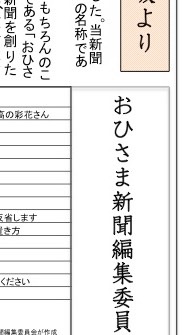 より
した。当新聞
の名称であ
もちろんのこ
である「おひさ
新聞を創りた
おひさま新聞編集委員
高の彩花さん
反省します
置き方
ください
聞編集委員会が作成